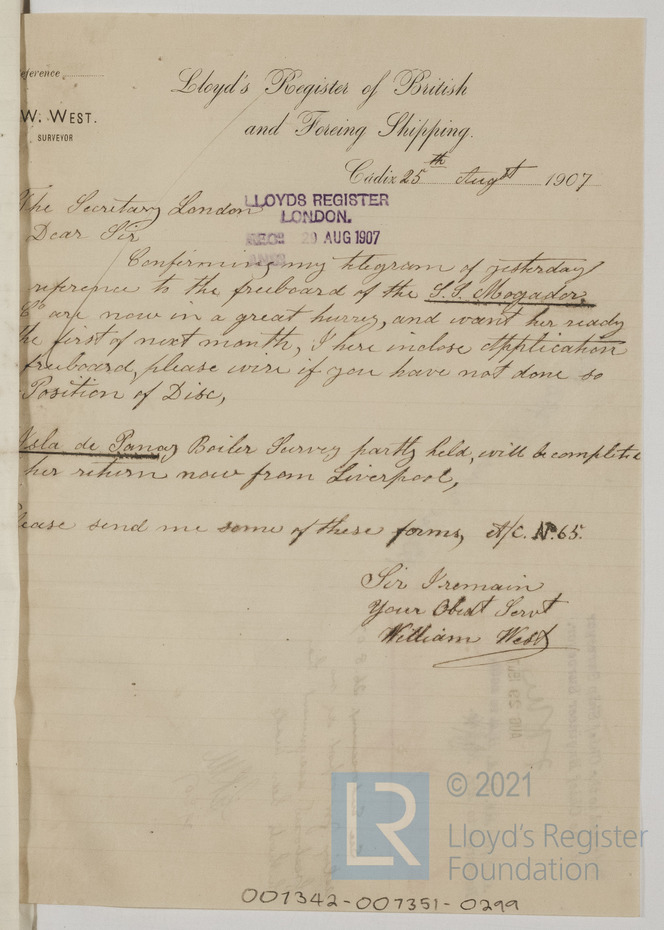 eference
Lloyd's Register of British
and Foreing Shipping.
W. WEST.
SURVEYOR
Cadiz 25th Augst 1907
The Secretary London
LLOYDS REGISTER
LONDON.
RECD 29 AUG 1907
ANSD
Dear Sir
Confirming my telegram of yesterday
reference to the freeboard of the S.S. Mogador,
are now in a great hurry, and want her ready
the first of next month, I here inclose Application
freeboard, please wire if you have not done so
Position of Disc,
Isla de Panay Boiler Survey partly held, will be complete
her return now from Liverpool,
lease send me some of these forms, A/C. No. 65.
Sir I remain
Your Obedt Servt
William West
AUG 29 15
LR
© 2021
Lloyd's Register
Foundation
007342-007351-0299